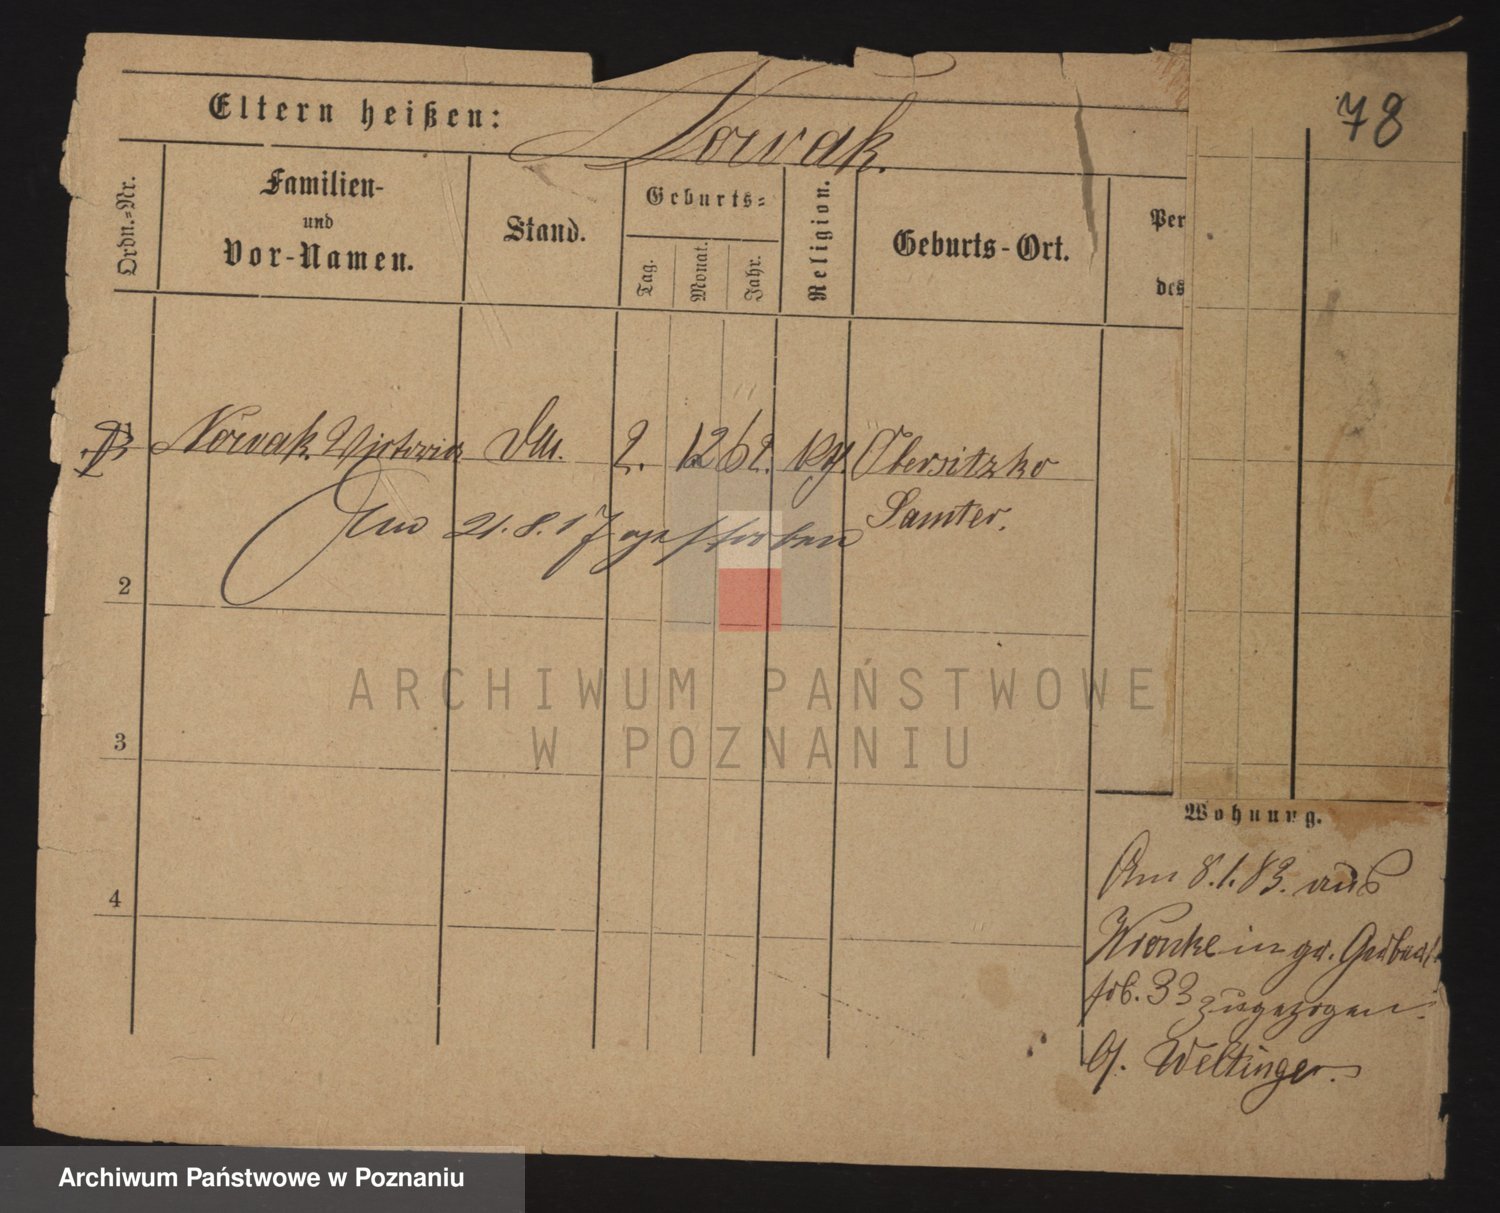 78
Eltern heißen: Nowak.
Ordn.-Nr.
Familien-
und
Vor-Namen.
Stand.
Geburts-
Tag.
Monat.
Jahr.
Religion.
Geburts-Ort.
Per
des
Nowak Victoria 2. 12 62. Obersitzko
Samter.
21. 8. 17 gestorben
2
3
4
Wohnung.
Am 8.1.83. aus
Wronke in gr. Gerber
33 zugezogen.
Weltinger.
ARCHIWUM PAŃSTWOWE
W POZNANIU
Archiwum Państwowe w Poznaniu